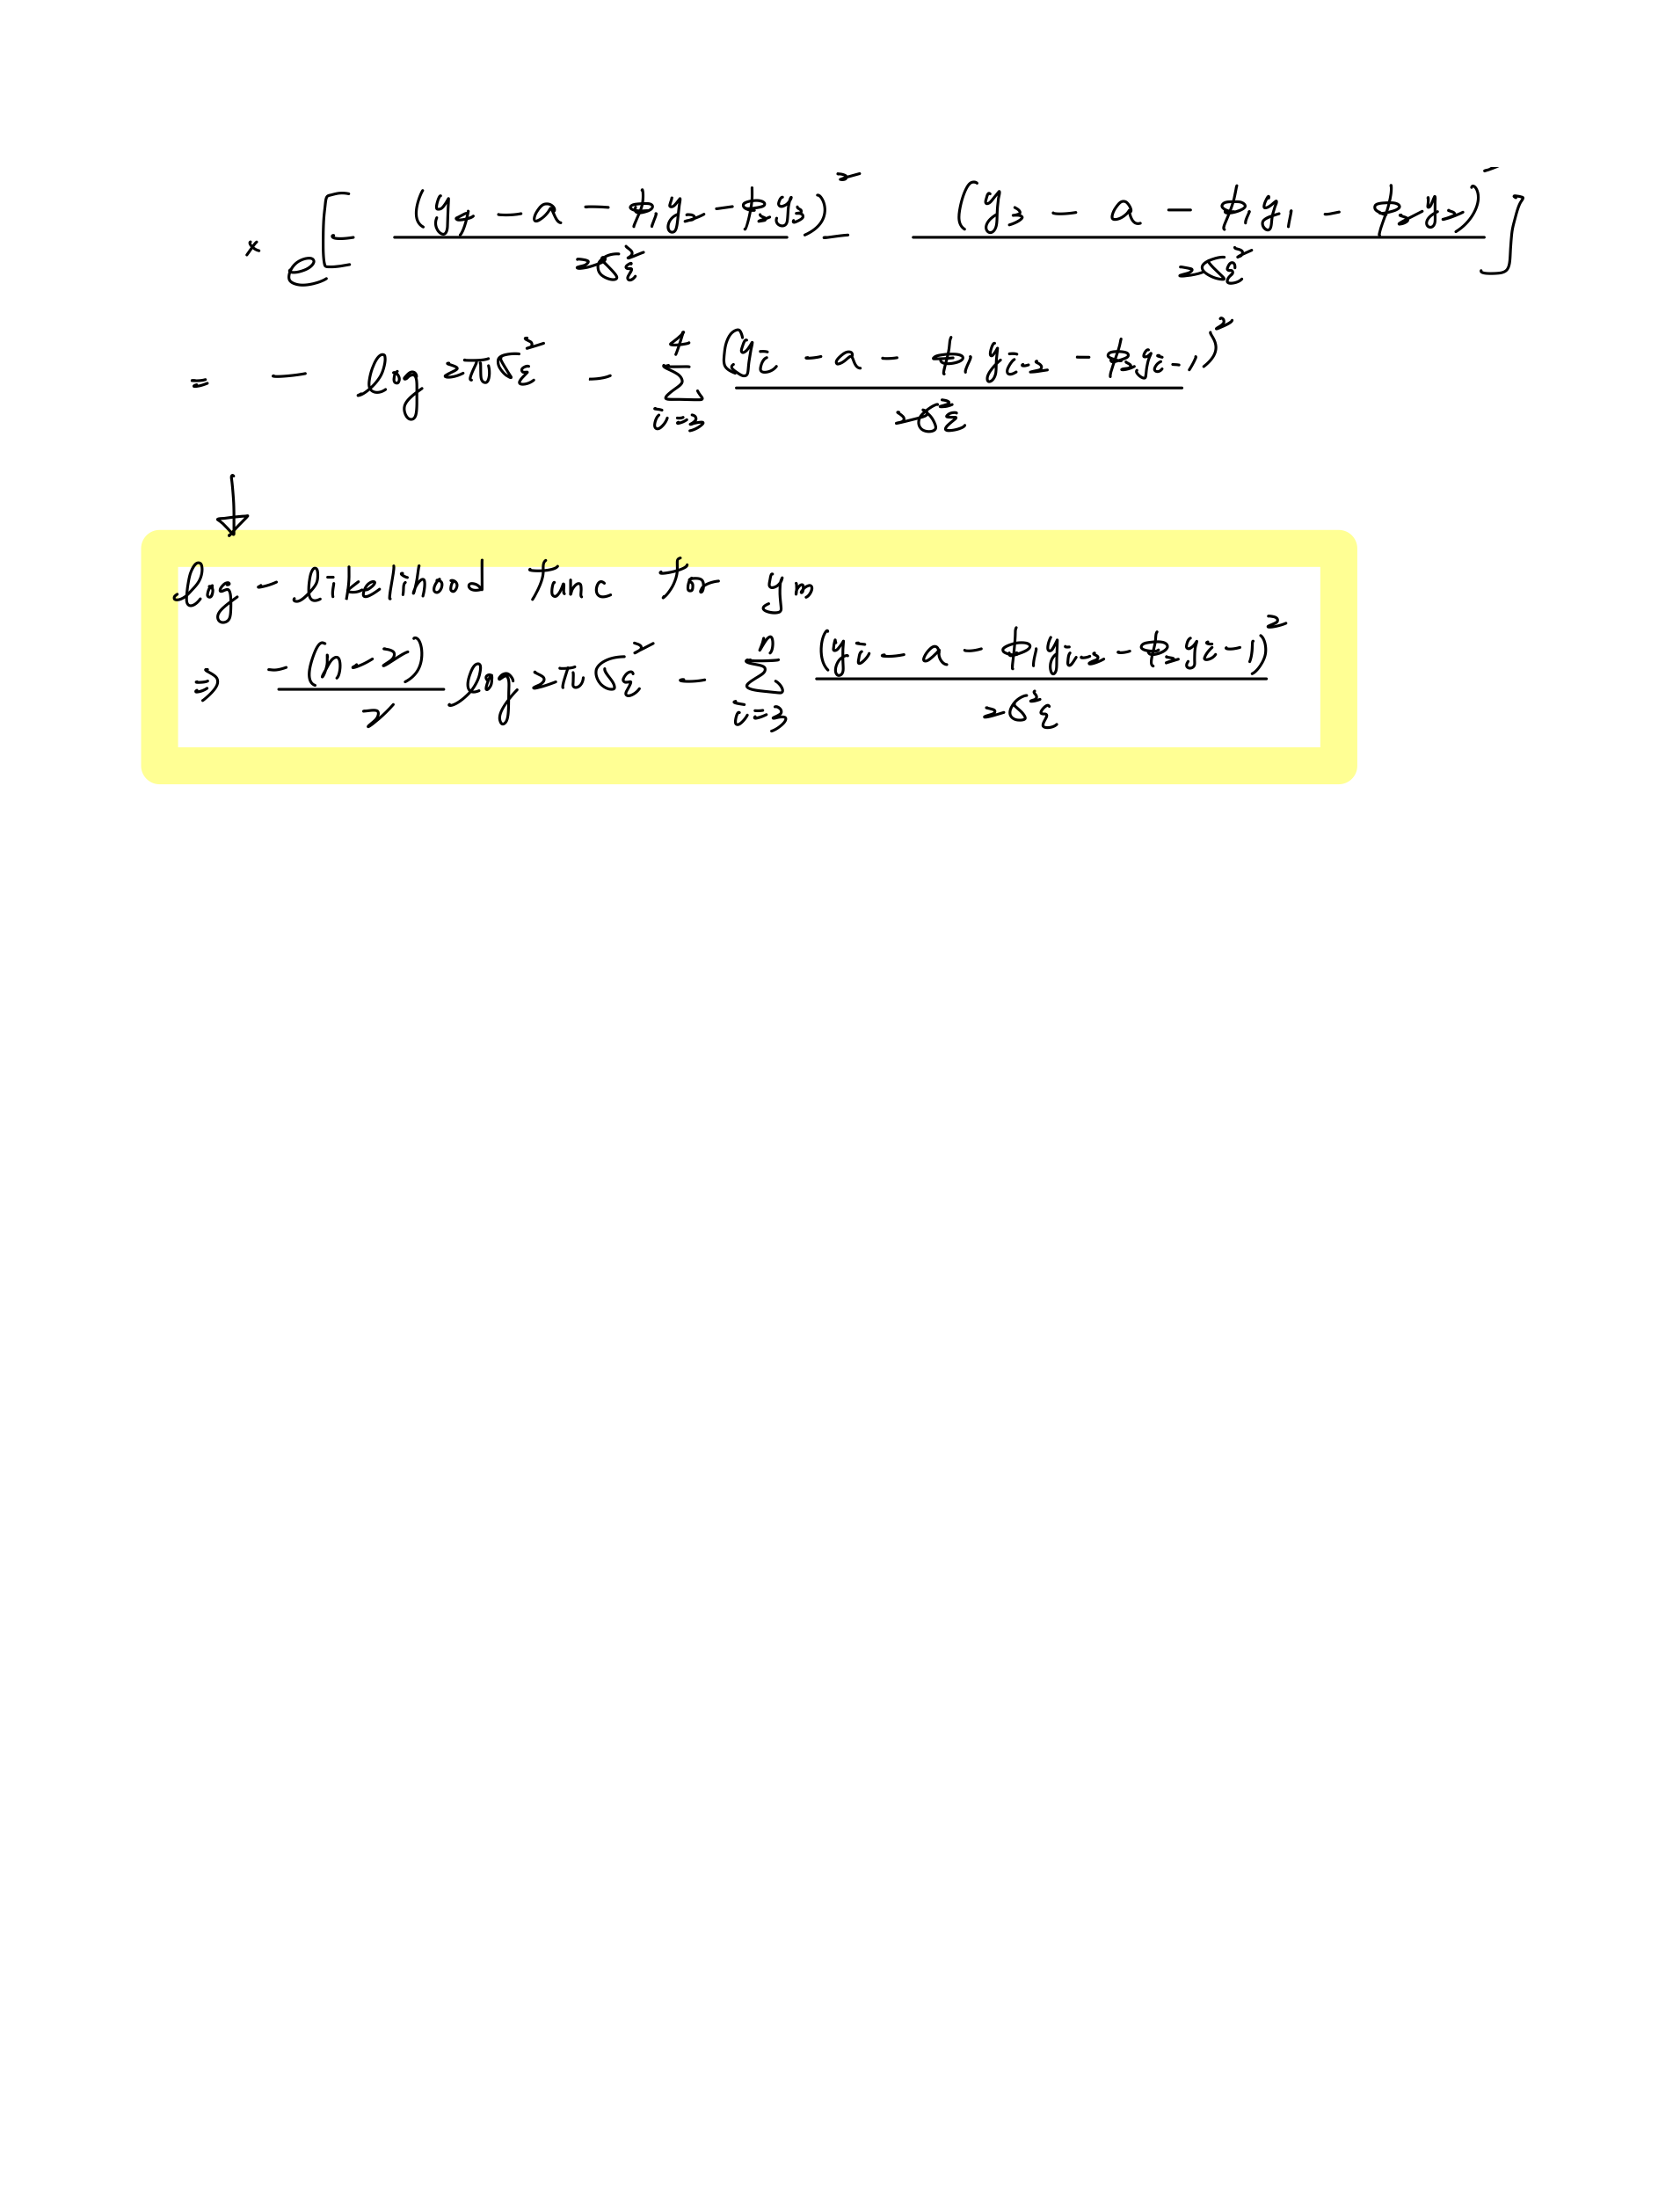 × e[- (y₄ - a - ϕ₁y₂ - ϕ₂y₃)²/2σε² - (y₃ - a - ϕ₁y₁ - ϕ₂y₂)²/2σε²]
= - log 2πσε² - Σ⁴ᵢ₌₃ (yᵢ - a - ϕ₁yᵢ₋₂ - ϕ₂yᵢ₋₁)²/2σ²ε
↓
log - likelihod func for yn
⇒ -(n-2)/2 log 2πσε² - Σⁿᵢ₌₃ (yᵢ - a - ϕ₁yᵢ₋₂ - ϕ₂yᵢ₋₁)²/2σ²ε